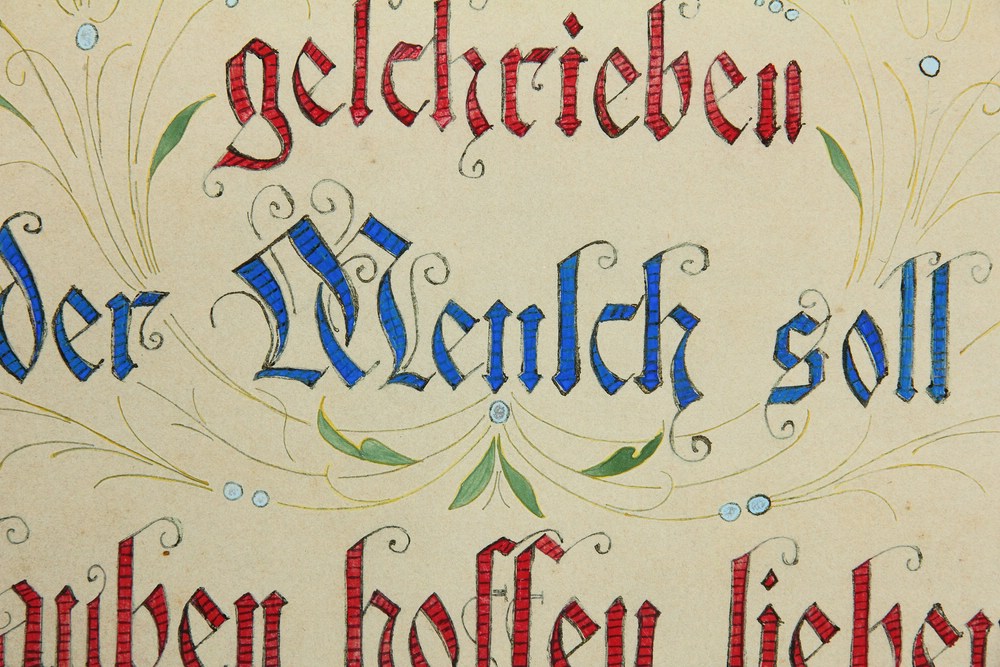 geschrieben
der Mensch soll
auben hoffen lieben